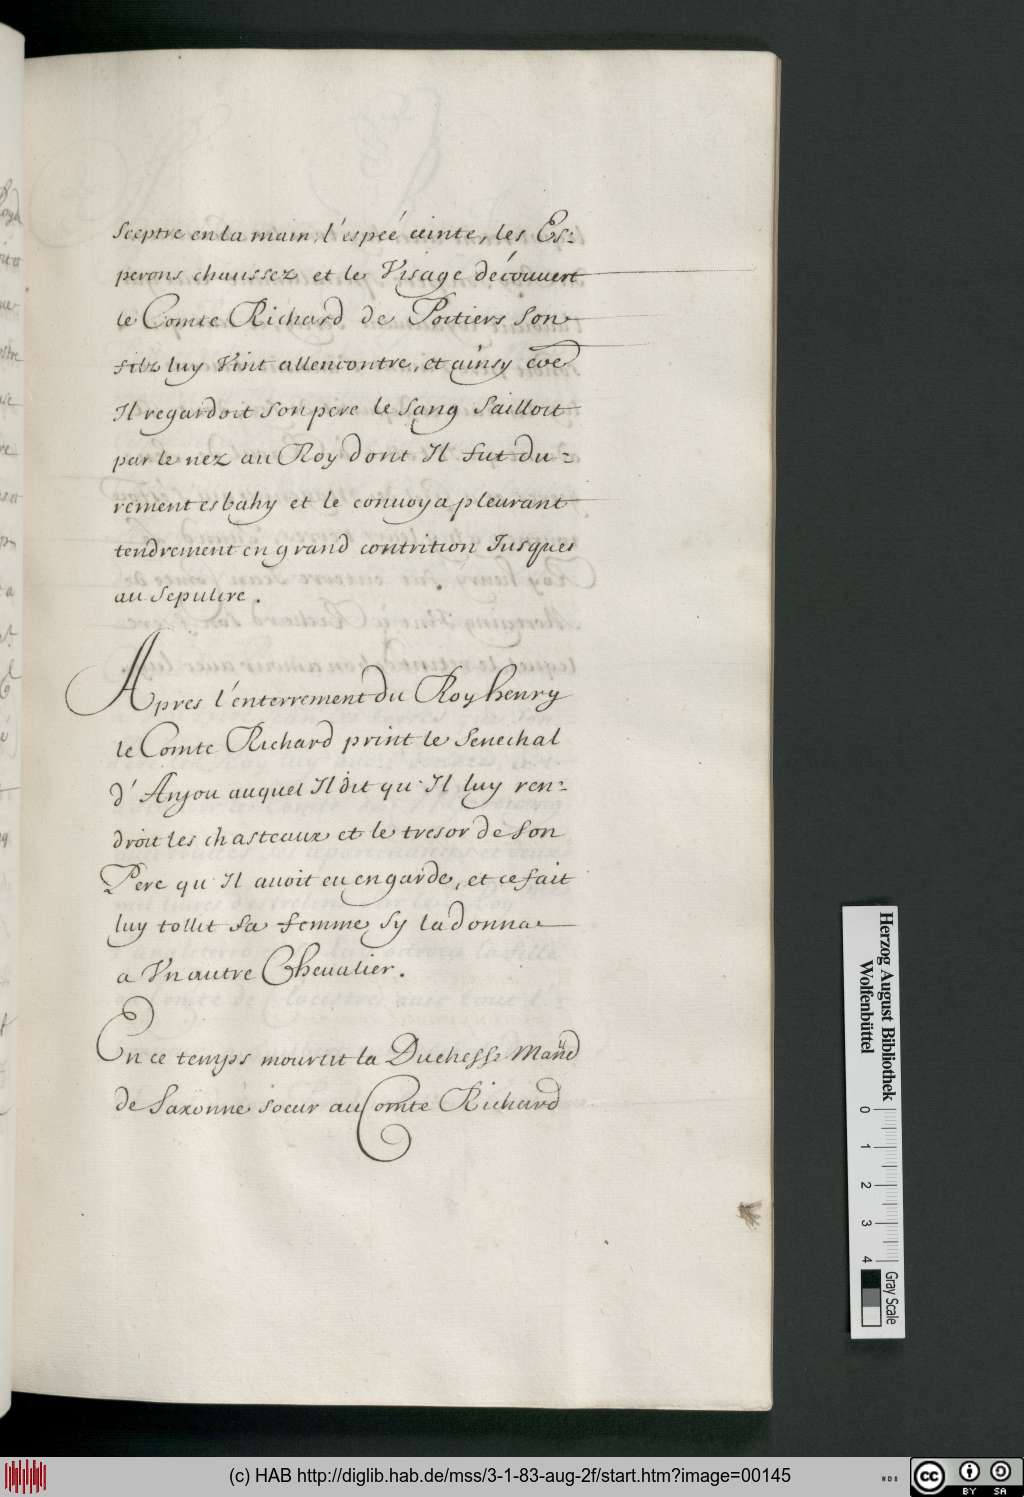 Sceptre en la main, l'espée ceinte, les Es-
perons chaussez et le Visage découuert
le Comte Richard de Poitiers Son
filz luy Vint allencontre, et ainsy
Il regardoit Son pere le Sang Sailloit
par le nez au Roy dont Il fut du-
rement esbahy et le conuoya pleurant
tendrement en grand contrition Jusques
au Sepulcre.
Apres l'enterrement du Roy henry
le Comte Richard print le Senechal
d'Anjou auquel Il dit qu'Il luy ren-
droit les chasteaux et le tresor de Son
Pere qu'Il auoit eu en garde, et ce fait
luy tollit Sa femme Sy la donna
a Vn autre Cheualier.
En ce temps mourut la Duchesse
de Saxonne Soeur au Comte Richard
Herzog August Bibliothek
Wolfenbüttel
0 1 2 3 4
Gray Scale
(c) HAB http://diglib.hab.de/mss/3-1-83-aug-2f/start.htm?image=00145
cc BY SA